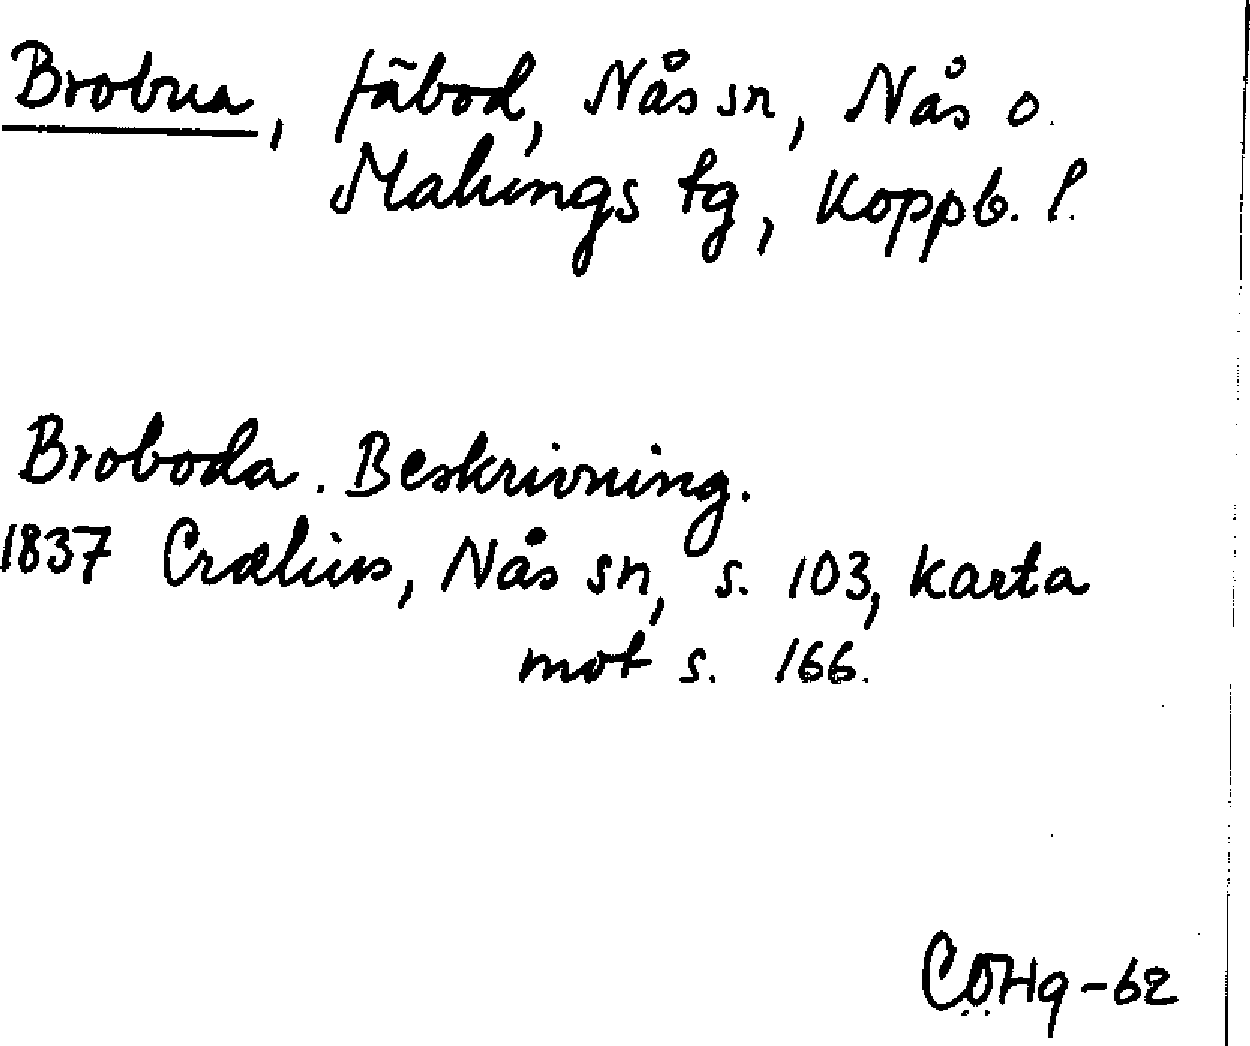 Brobua, fäbod, Nås sn, Nås o.
Malungs tg, Koppb. l.
Broboda. Beskrivning.
1837 Crælius, Nås sn, s. 103, karta
mot s. 166.
CÖHg-62